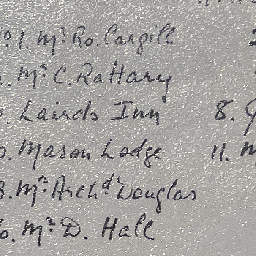 1. Mr. Ro. Cargill
Mr. C. Rattary
Lairds Inn 8.
Mason Lodge 11.
Mr. Archd. Douglas
Mr. D. Hall